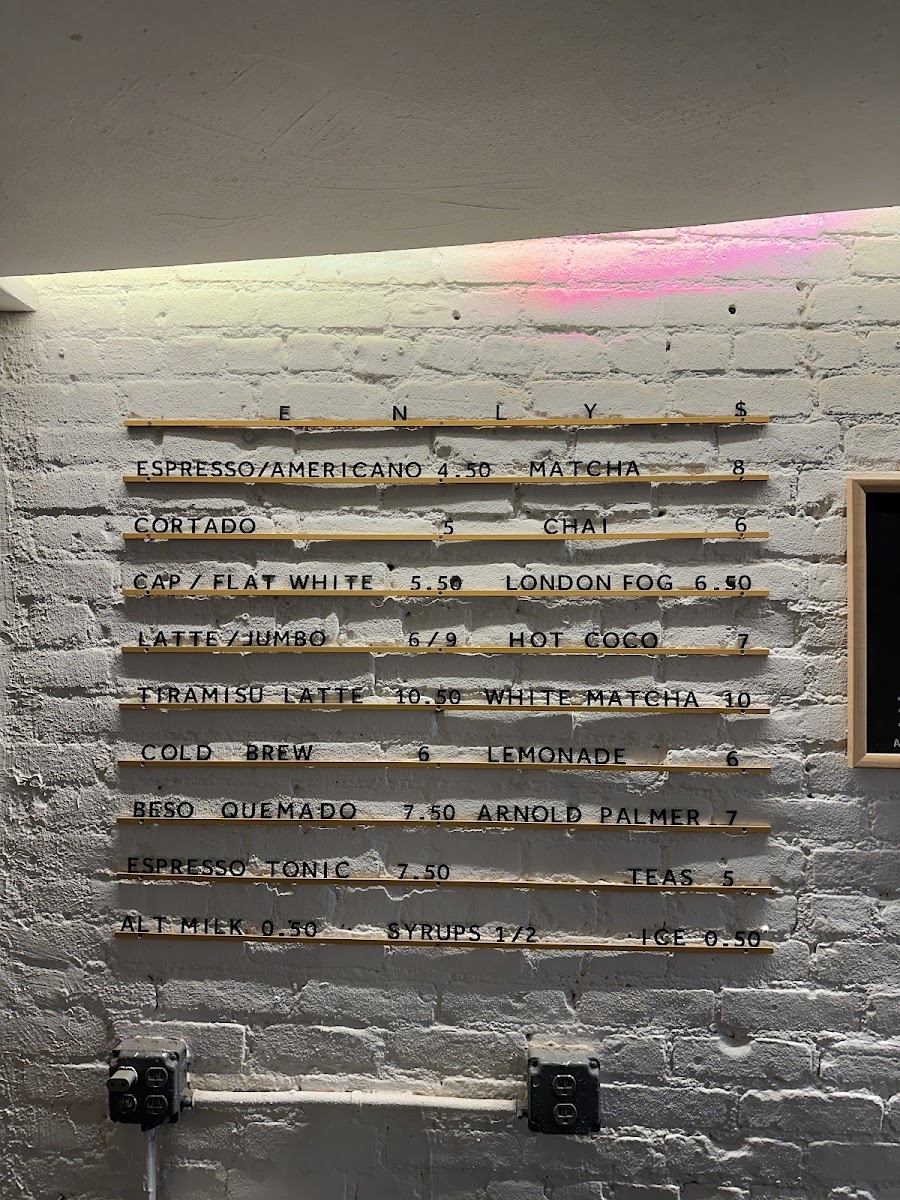 E N L Y $
ESPRESSO/AMERICANO 4.50 MATCHA 8
CORTADO 5 CHAI 6
CAP / FLAT WHITE 5.50 LONDON FOG 6.50
LATTE/JUMBO 6/9 HOT COCO 7
TIRAMISU LATTE 10.50 WHITE MATCHA 10
COLD BREW 6 LEMONADE 6
BESO QUEMADO 7.50 ARNOLD PALMER 7
ESPRESSO TONIC 7.50 TEAS 5
ALT MILK 0.50 SYRUPS 1/2 ICE 0.50